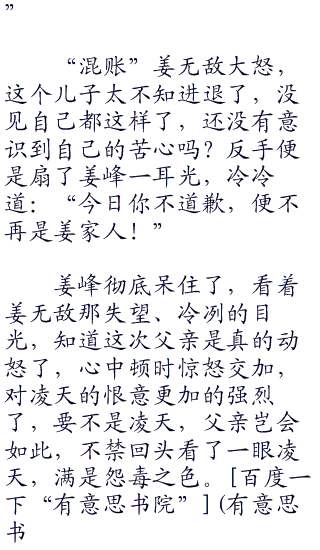 ”
“混账”姜无敌大怒，
这个儿子太不知进退了，没
见自己都这样了，还没有意
识到自己的苦心吗？反手便
是扇了姜峰一耳光，冷冷
道：“今日你不道歉，便不
再是姜家人！”
姜峰彻底呆住了，看着
姜无敌那失望、冷冽的目
光，知道这次父亲是真的动
怒了，心中顿时惊怒交加，
对凌天的恨意更加的强烈
了，要不是凌天，父亲岂会
如此，不禁回头看了一眼凌
天，满是怨毒之色。[百度一
下“有意思书院”](有意思
书